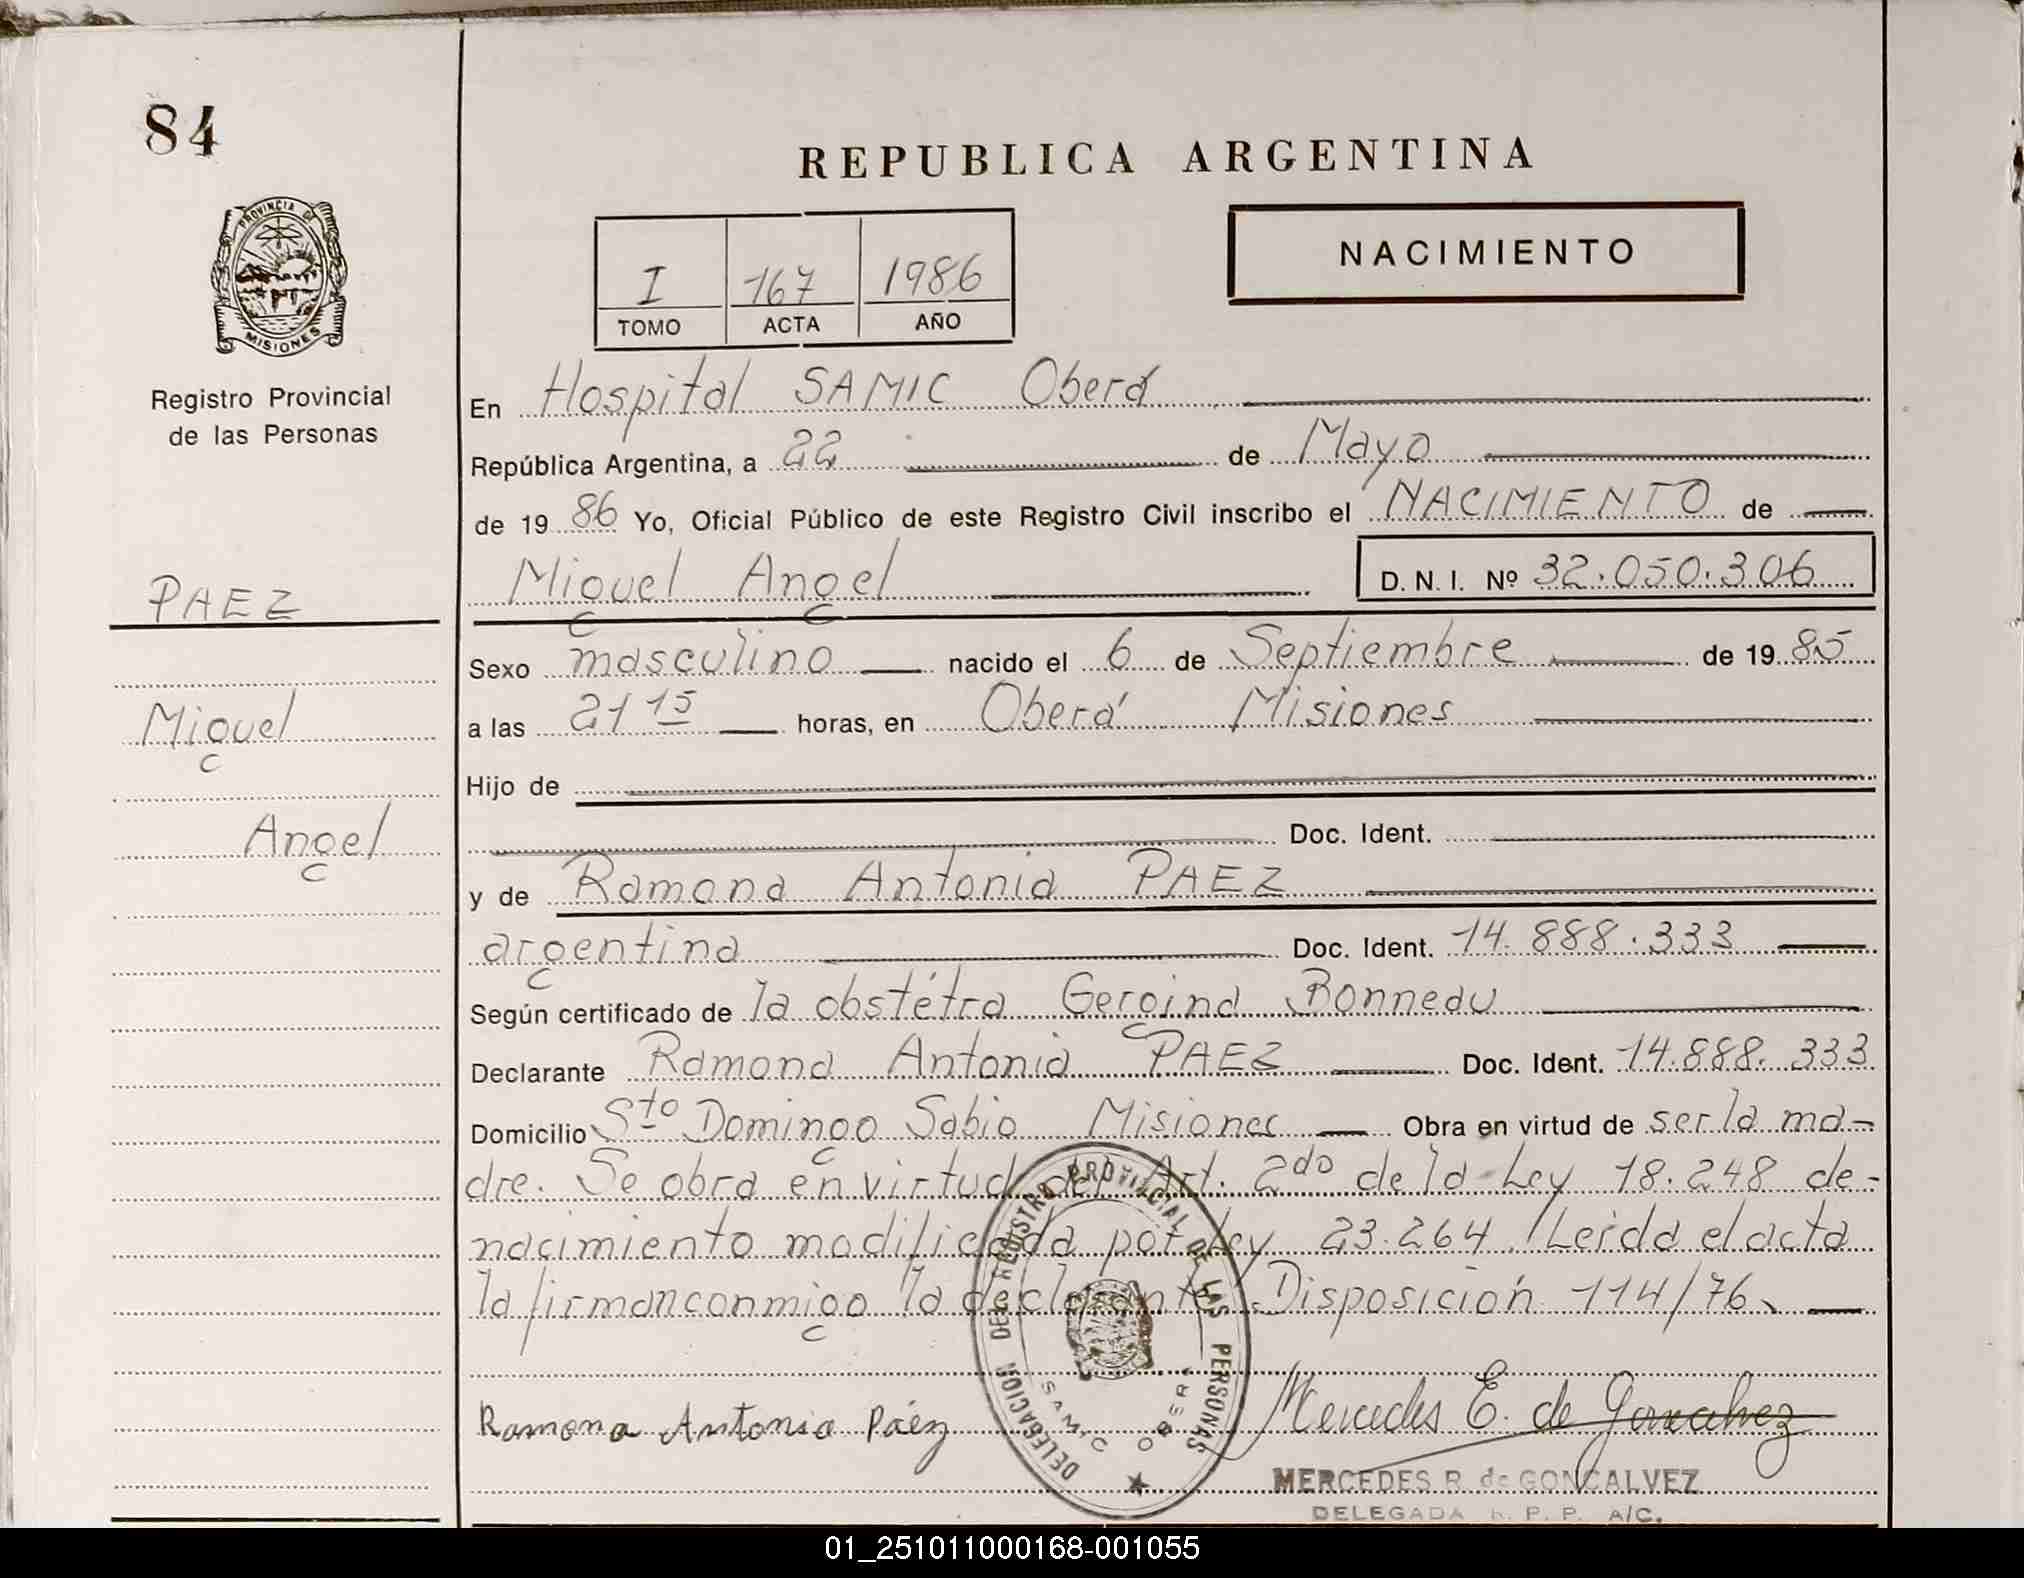 84
REPUBLICA ARGENTINA
PROVINCIA DE
MISIONES
NACIMIENTO
I 167 1986
TOMO ACTA AÑO
Registro Provincial
de las Personas
En Hospital SAMIC Oberá
República Argentina, a 22 de Mayo
de 19 86 Yo, Oficial Público de este Registro Civil inscribo el NACIMIENTO de
Miguel Angel D. N. I. Nº 32.050.306
PAEZ
Sexo masculino nacido el 6 de Septiembre de 19 85
Miguel
a las 21 15 horas, en Oberá Misiones
Hijo de
Angel
Doc. Ident.
y de Ramona Antonia PAEZ
argentina Doc. Ident. 14.888.333
Según certificado de la obstétra Georgina Bonneau
Declarante Ramona Antonia PAEZ Doc. Ident. 14.888.333
Domicilio Sto Domingo Sabio Misiones Obra en virtud de ser la ma-
dre. Se obra en virtud del Art. 2do de la Ley 18.248 de-
nacimiento modificada por Ley 23.264. Leida el acta
la firman conmigo la declarante. Disposición 114/76
DELEGACION DEL REGISTRO PROVINCIAL DE LAS PERSONAS
SAMIC OBERA
Ramona Antonia Páez
Mercedes E. de Goncalvez
MERCEDES R. de GONCALVEZ
DELEGADA R. P. P. A/C.
01_251011000168-001055